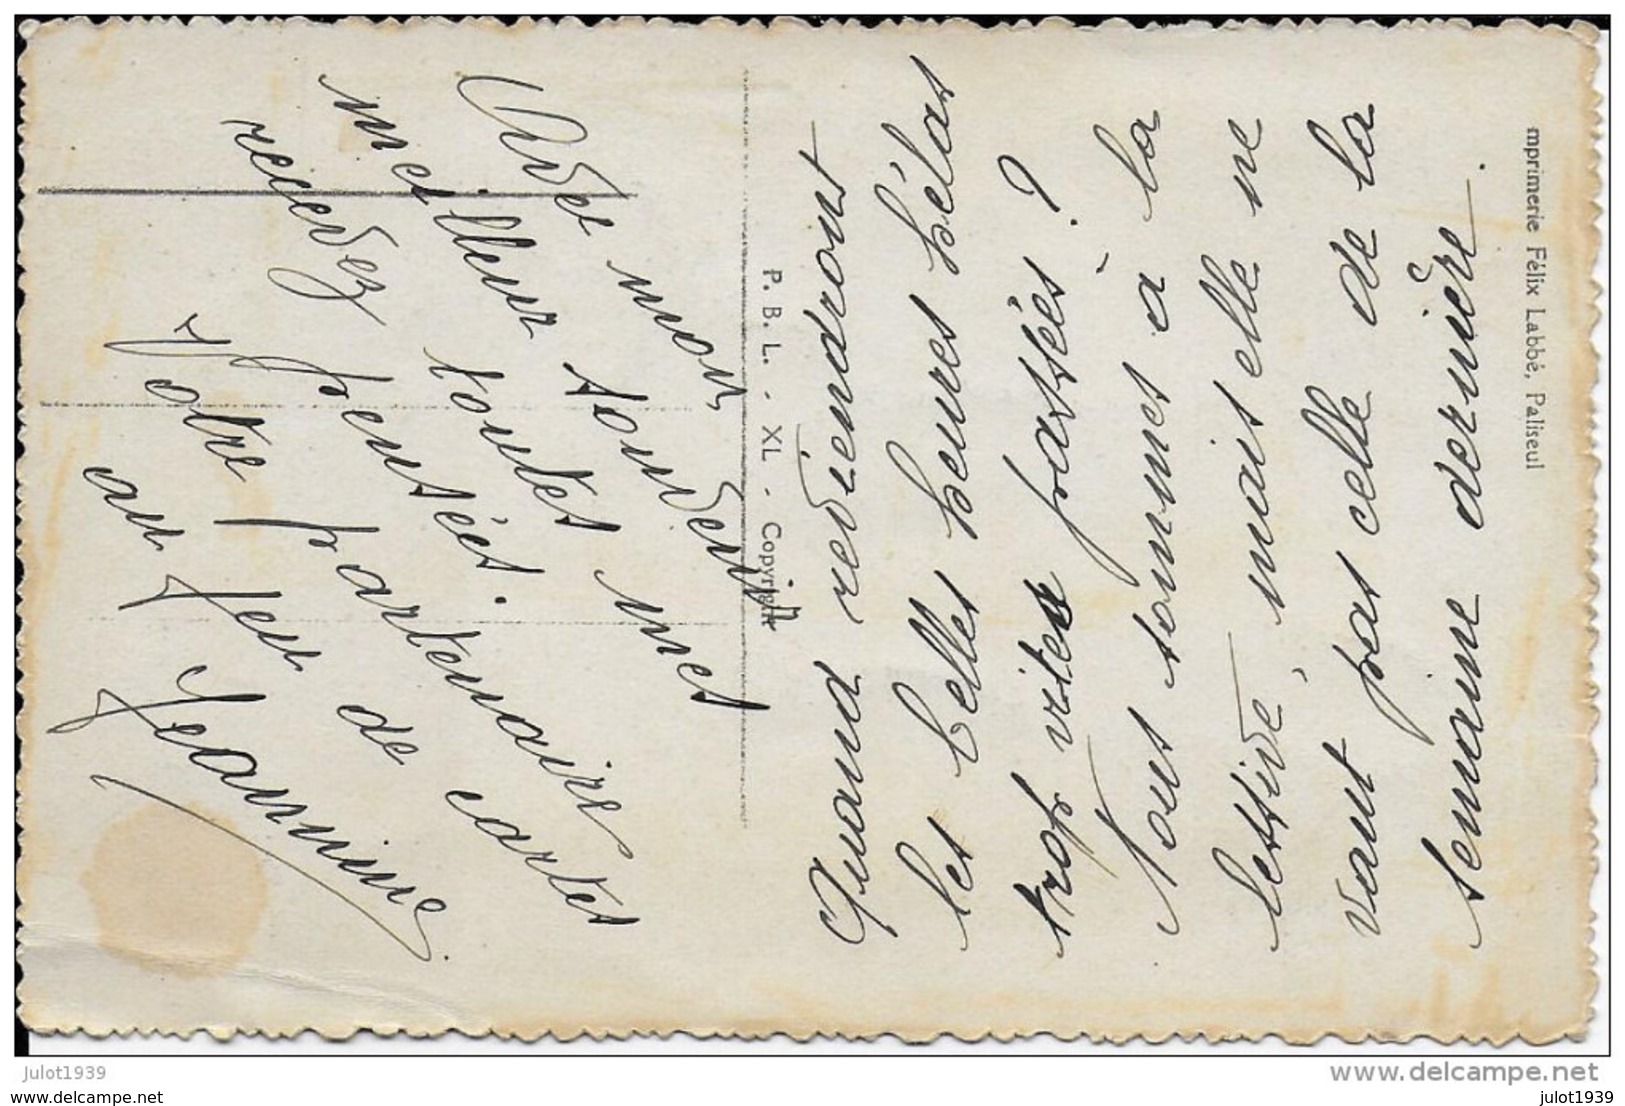 Quand reviendront
les belles heures hélas
trop vites passées ?
Nous sommes à la
lessive, mais elle ne
vaut pas celle de la
semaine dernière.
mprimerie Félix Labbé, Paliseul
P. B. L. - XL - Copyright
Avec mon
meilleur souvenir
recevez toutes mes
pensées.
Votre partenaire
au jeu de cartes
Jeannine
julot1939
www.delcampe.net
julot1939
julot1939